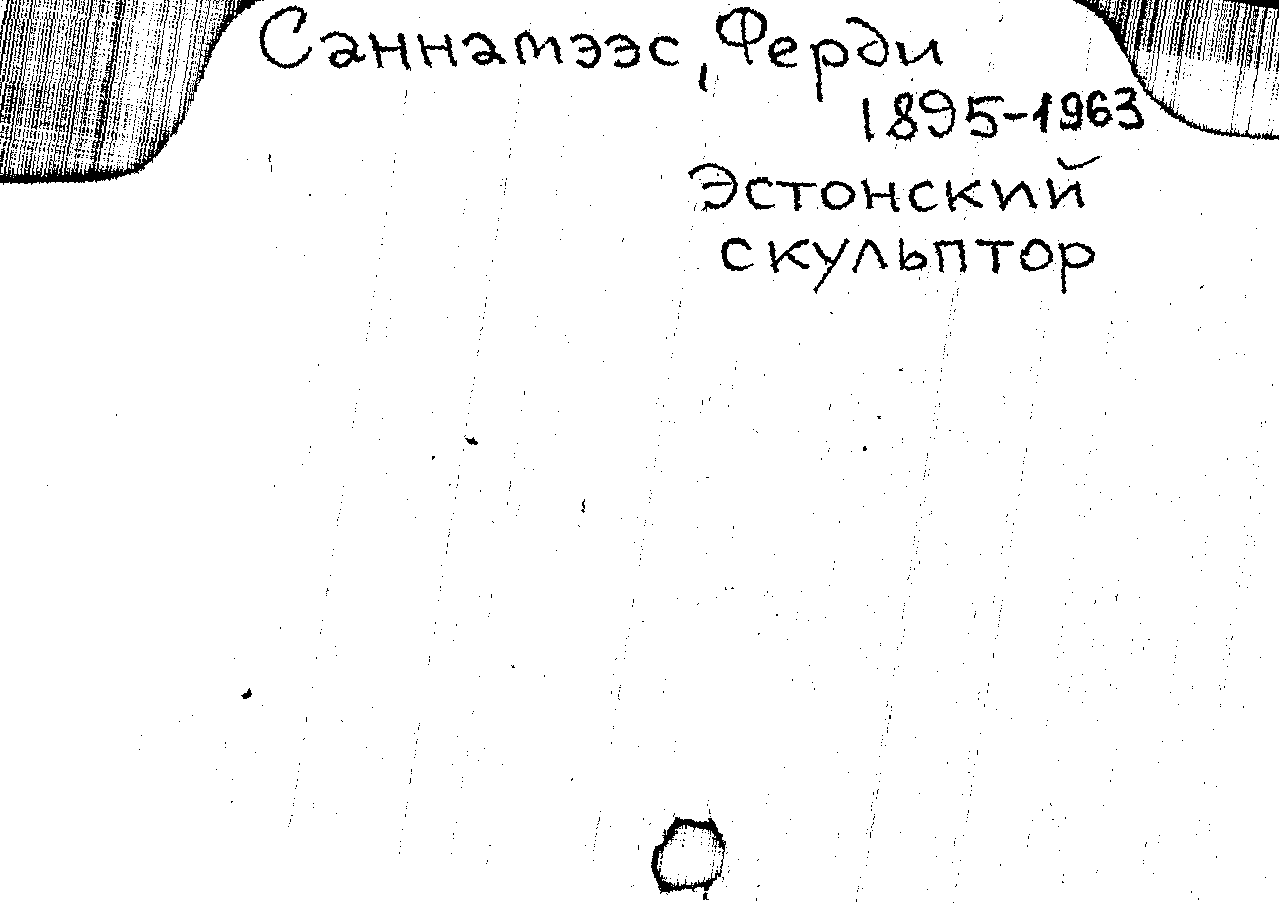 Саннамээс, Ферди
1895-1963
Эстонский
скульптор